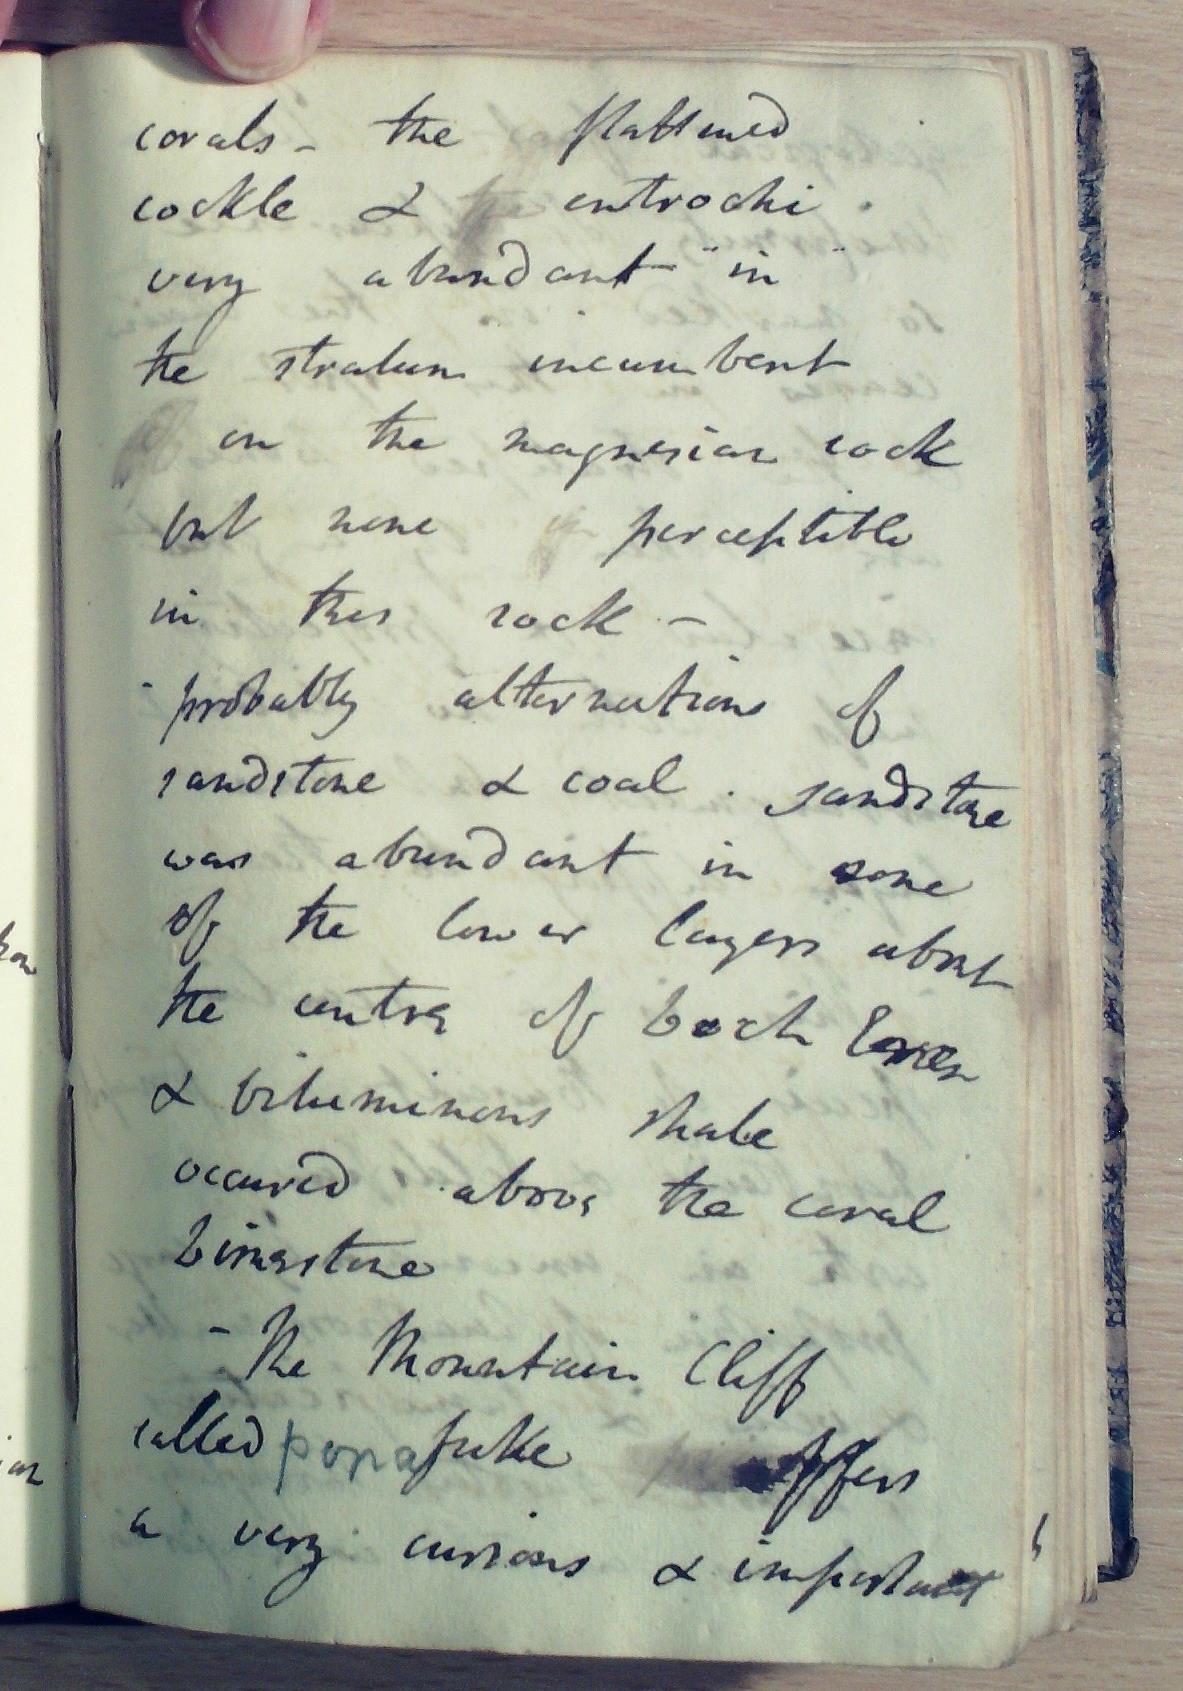 corals - the flattened
cockle & entrochi
very abundant "in"
the stratum incumbent
on the magnesian rock
but none perceptible
in this rock -
- probably alternations of
sandstone & coal . sandstone
was abundant in some
of the lower layers about
the centre of Loch
& bituminous shale
occured above the coral
Limestone
- The Mountain Cliff
called offers
a very curious & important